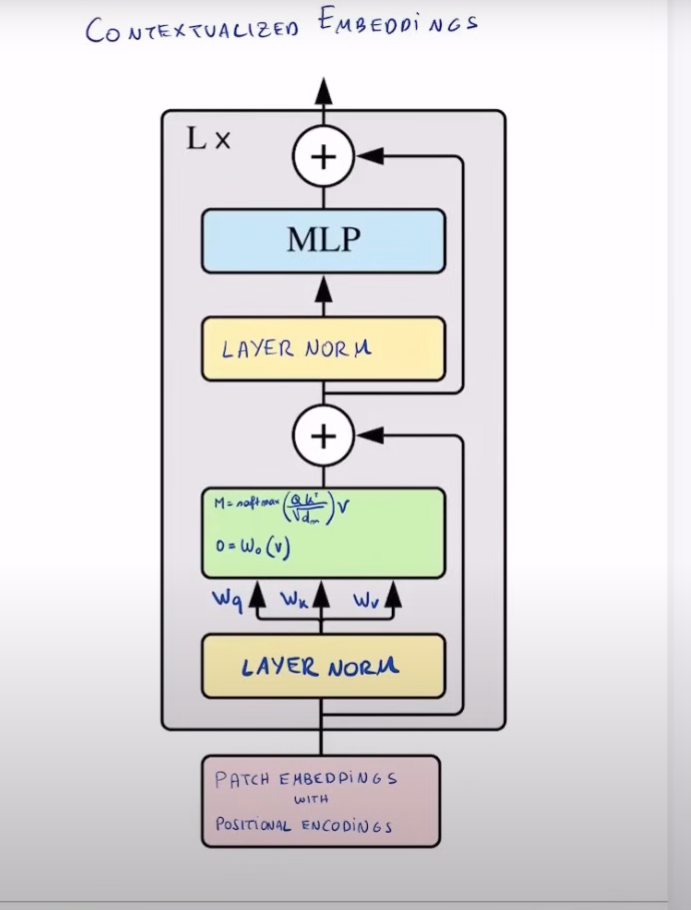 CONTEXTUALIZED EMBEDDINGS
L x
+
MLP
LAYER NORM
+
M = softmax (QKᵀ/√dₘ) V
O = Wₒ (V)
Wq Wk Wv
LAYER NORM
PATCH EMBEDDINGS
WITH
POSITIONAL ENCODINGS